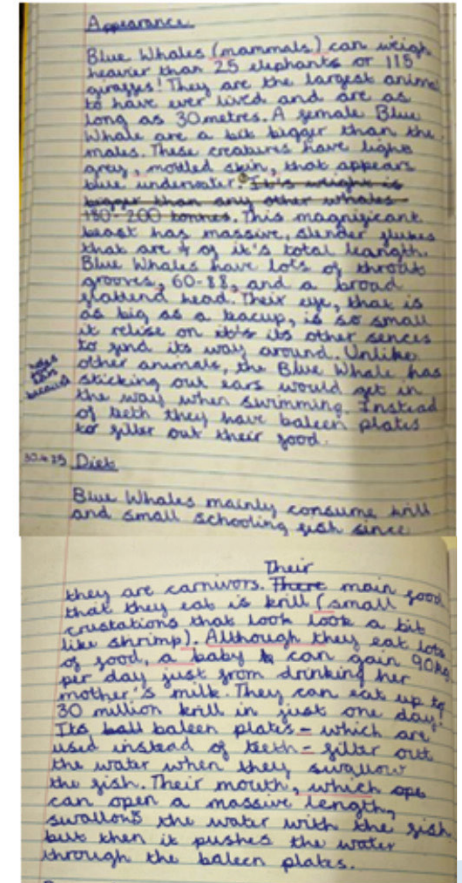 Appearance
Blue Whales (mammals) can weigh
heavier than 25 elephants or 115
giraffes! They are the largest animal
to have ever lived and are as
long as 30 metres. A female Blue
Whale are a bit bigger than the
males. These creatures have light
grey, mottled skin, that appears
blue underwater. It's weight is
bigger than any other whales
150-200 tonnes. This magnificant
beast has massive, slender flukes
that are ¼ of it's total leangth.
Blue Whales have lots of throat
grooves, 60-88, and a broad
flattend head. Their eye, that is
as big as a teacup, is so small
it relise on it's its other sences
to find its way around. Unlike
other animals, the Blue Whale has
sticking out ears would get in
the way when swimming. Instead
of teeth they have baleen plates
to filter out their food.
Diet
Blue Whales mainly consume krill
and small schooling fish since
Their
they are carnivors. There main food
that they eat is krill (small
crustations that look look a bit
like shrimp). Although they eat lots
of food, a baby can gain 90kg
per day just from drinking her
mother's milk. They can eat up to
30 million krill in just one day!
Its ball baleen plates - which are
used instead of teeth - filter out
the water when they swallow
the fish. Their mouth, which ope
can open a massive length,
swallows the water with the fish
but then it pushes the water
through the baleen plates.